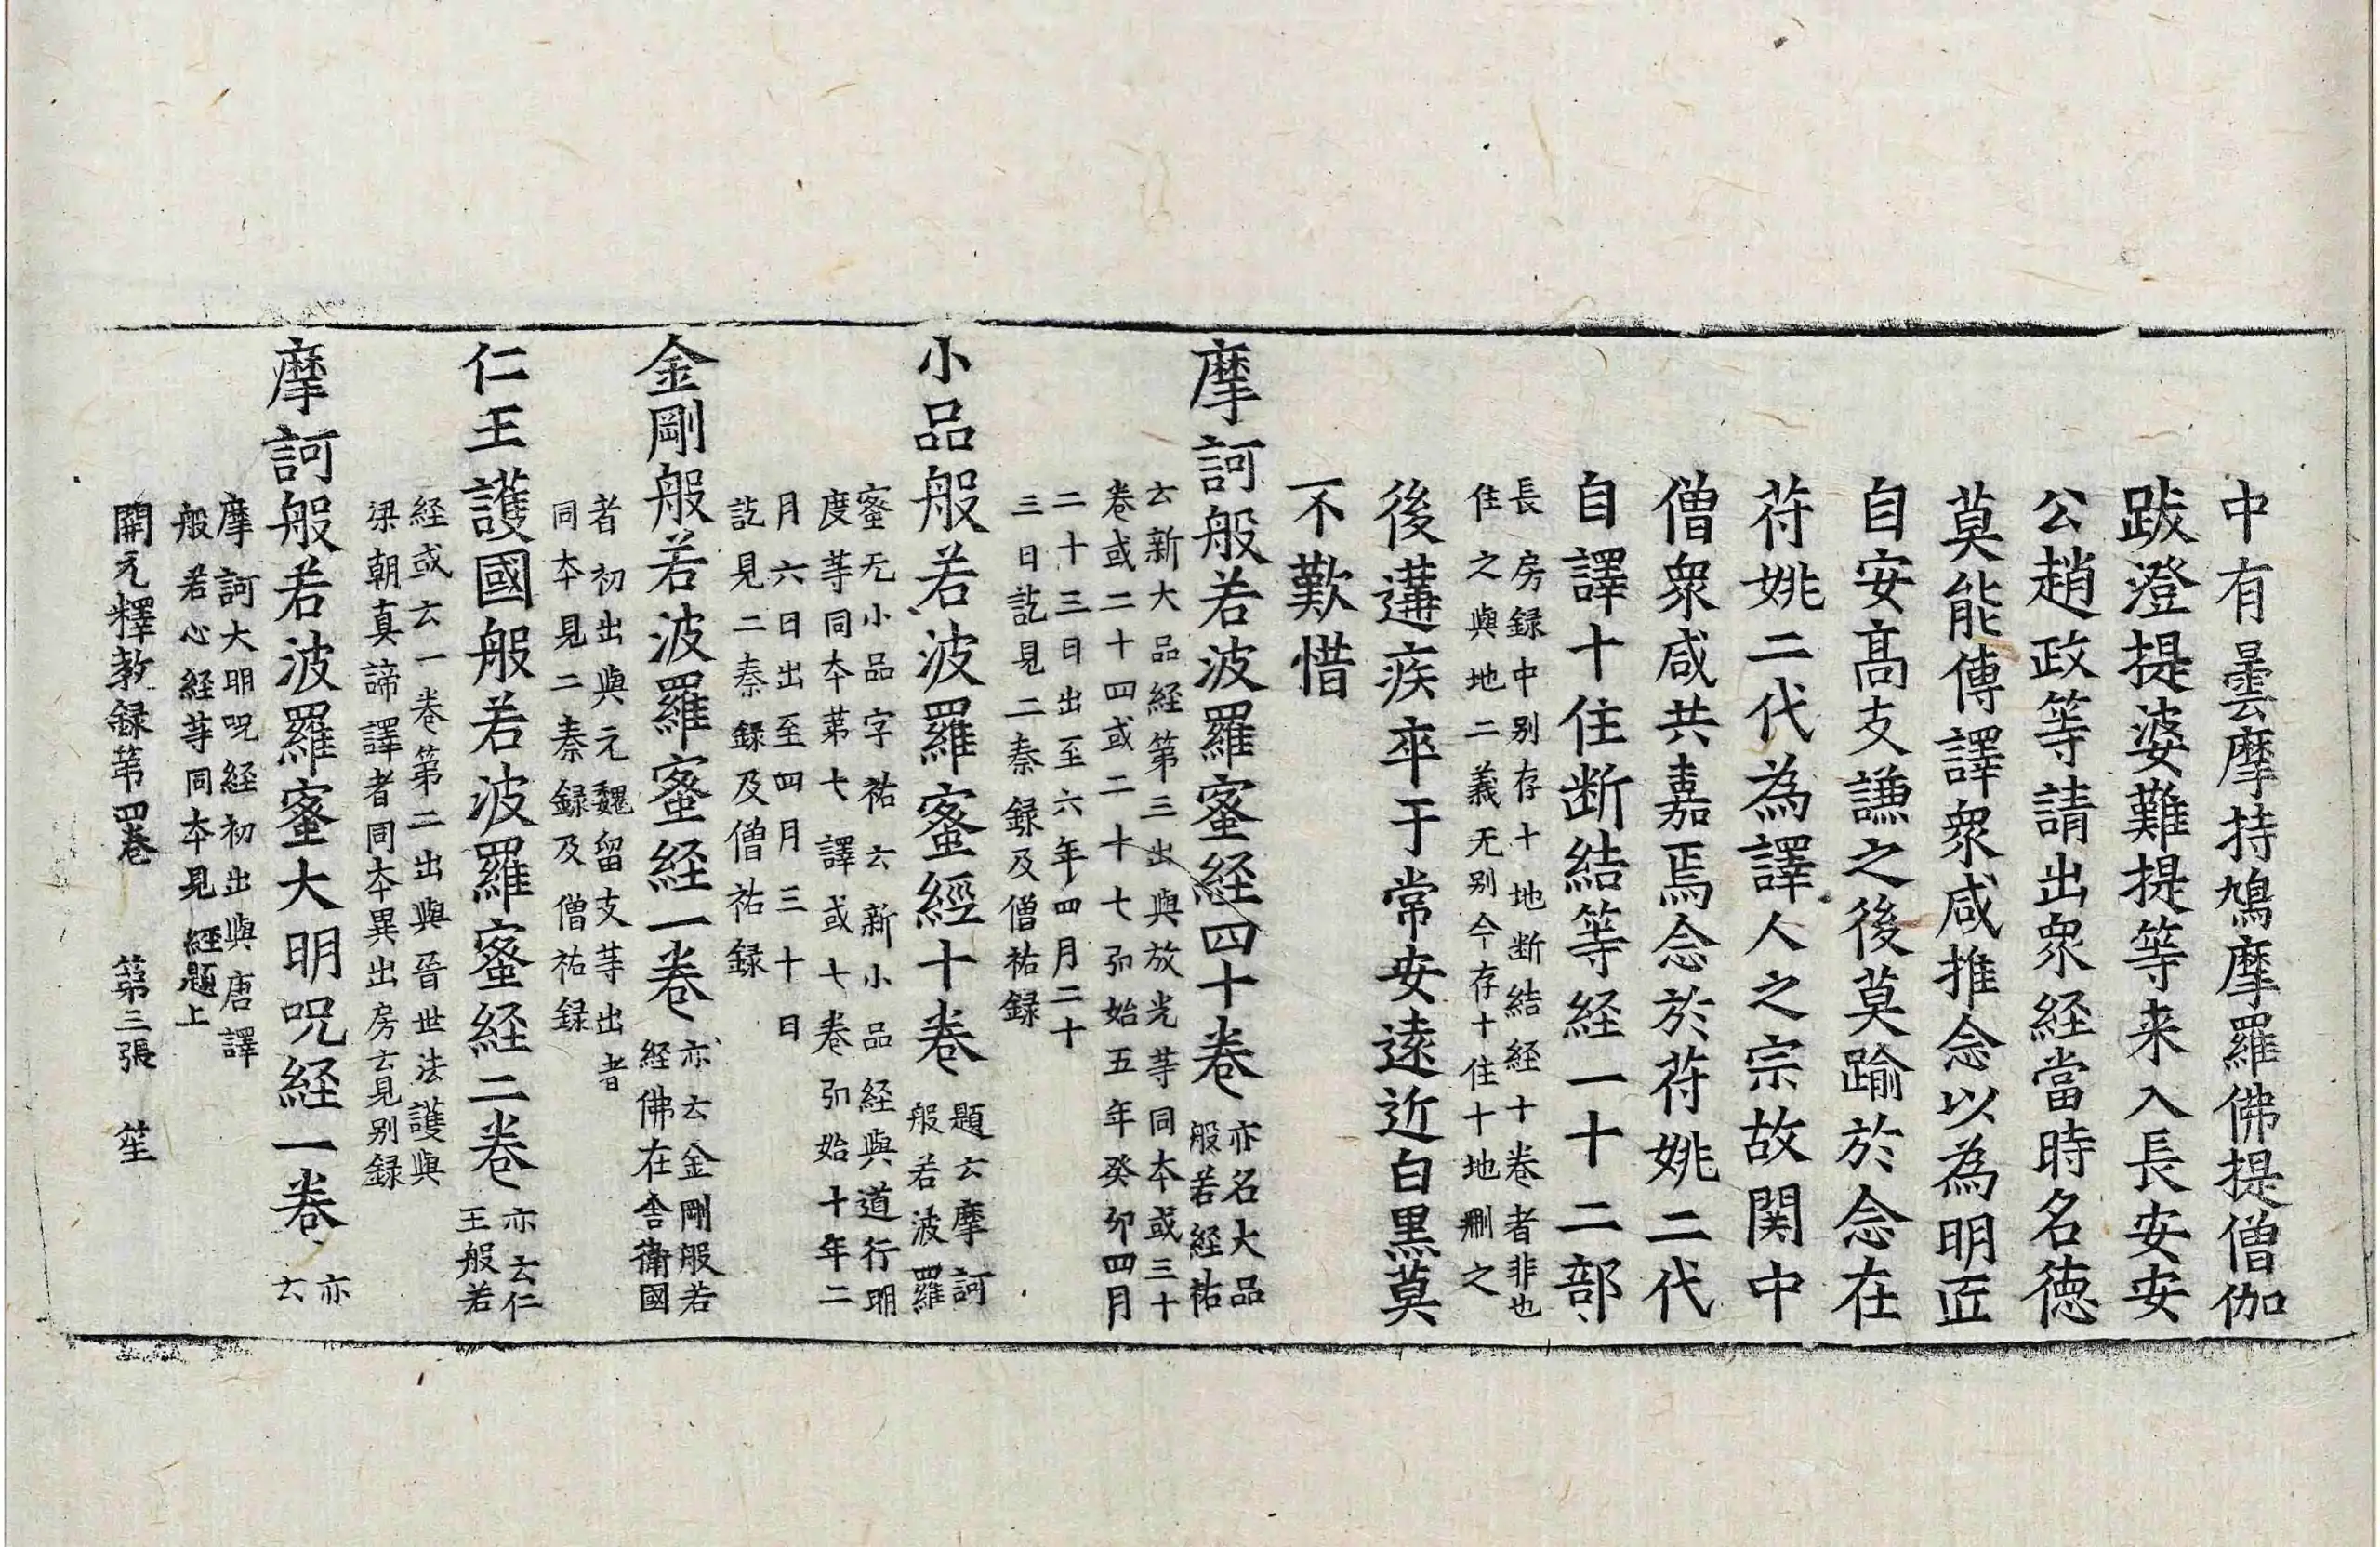 中有曇摩持鳩摩羅佛提僧伽
跋澄提婆難提等来入長安安
公趙政等請出衆経當時名徳
莫能傳譯衆咸推念以為明匠
自安髙支謙之後莫踰於念在
苻姚二代為譯人之宗故関中
僧衆咸共嘉焉念於苻姚二代
自譯十住断結等経一十二部
長房録中別存十地断結経十卷者非也
住之與地二義无别今存十住十地刪之
後遘疾卒于常安逺近白黒莫
不歎惜
摩訶般若波羅蜜経四十卷
亦名大品
般若経祐
云新大品経第三出與放光等同夲或三十
卷或二十四或二十七弘始五年癸夘四月
二十三日出至六年四月二十
三日訖見二秦録及僧祐録
小品般若波羅蜜經十卷
題云摩訶
般若波羅
蜜无小品字祐云新小品経與道行明
度等同夲第七譯或七卷弘始十年二
月六日出至四月三十日
訖見二秦録及僧祐録
金剛般若波羅蜜経一卷
亦云金剛般若
経佛在舎衞國
者初出與元魏留支等出者
同夲見二秦録及僧祐録
仁王護國般若波羅蜜経二卷
亦云仁
王般若
経或云一卷第二出與晉世法護與
梁朝真諦譯者同夲異出房云見别録
摩訶般若波羅蜜大明呪経一卷
亦
云
摩訶大明呪経初出與唐譯
般若心経等同夲見経題上
開元釋教録第四卷　第三張　笙